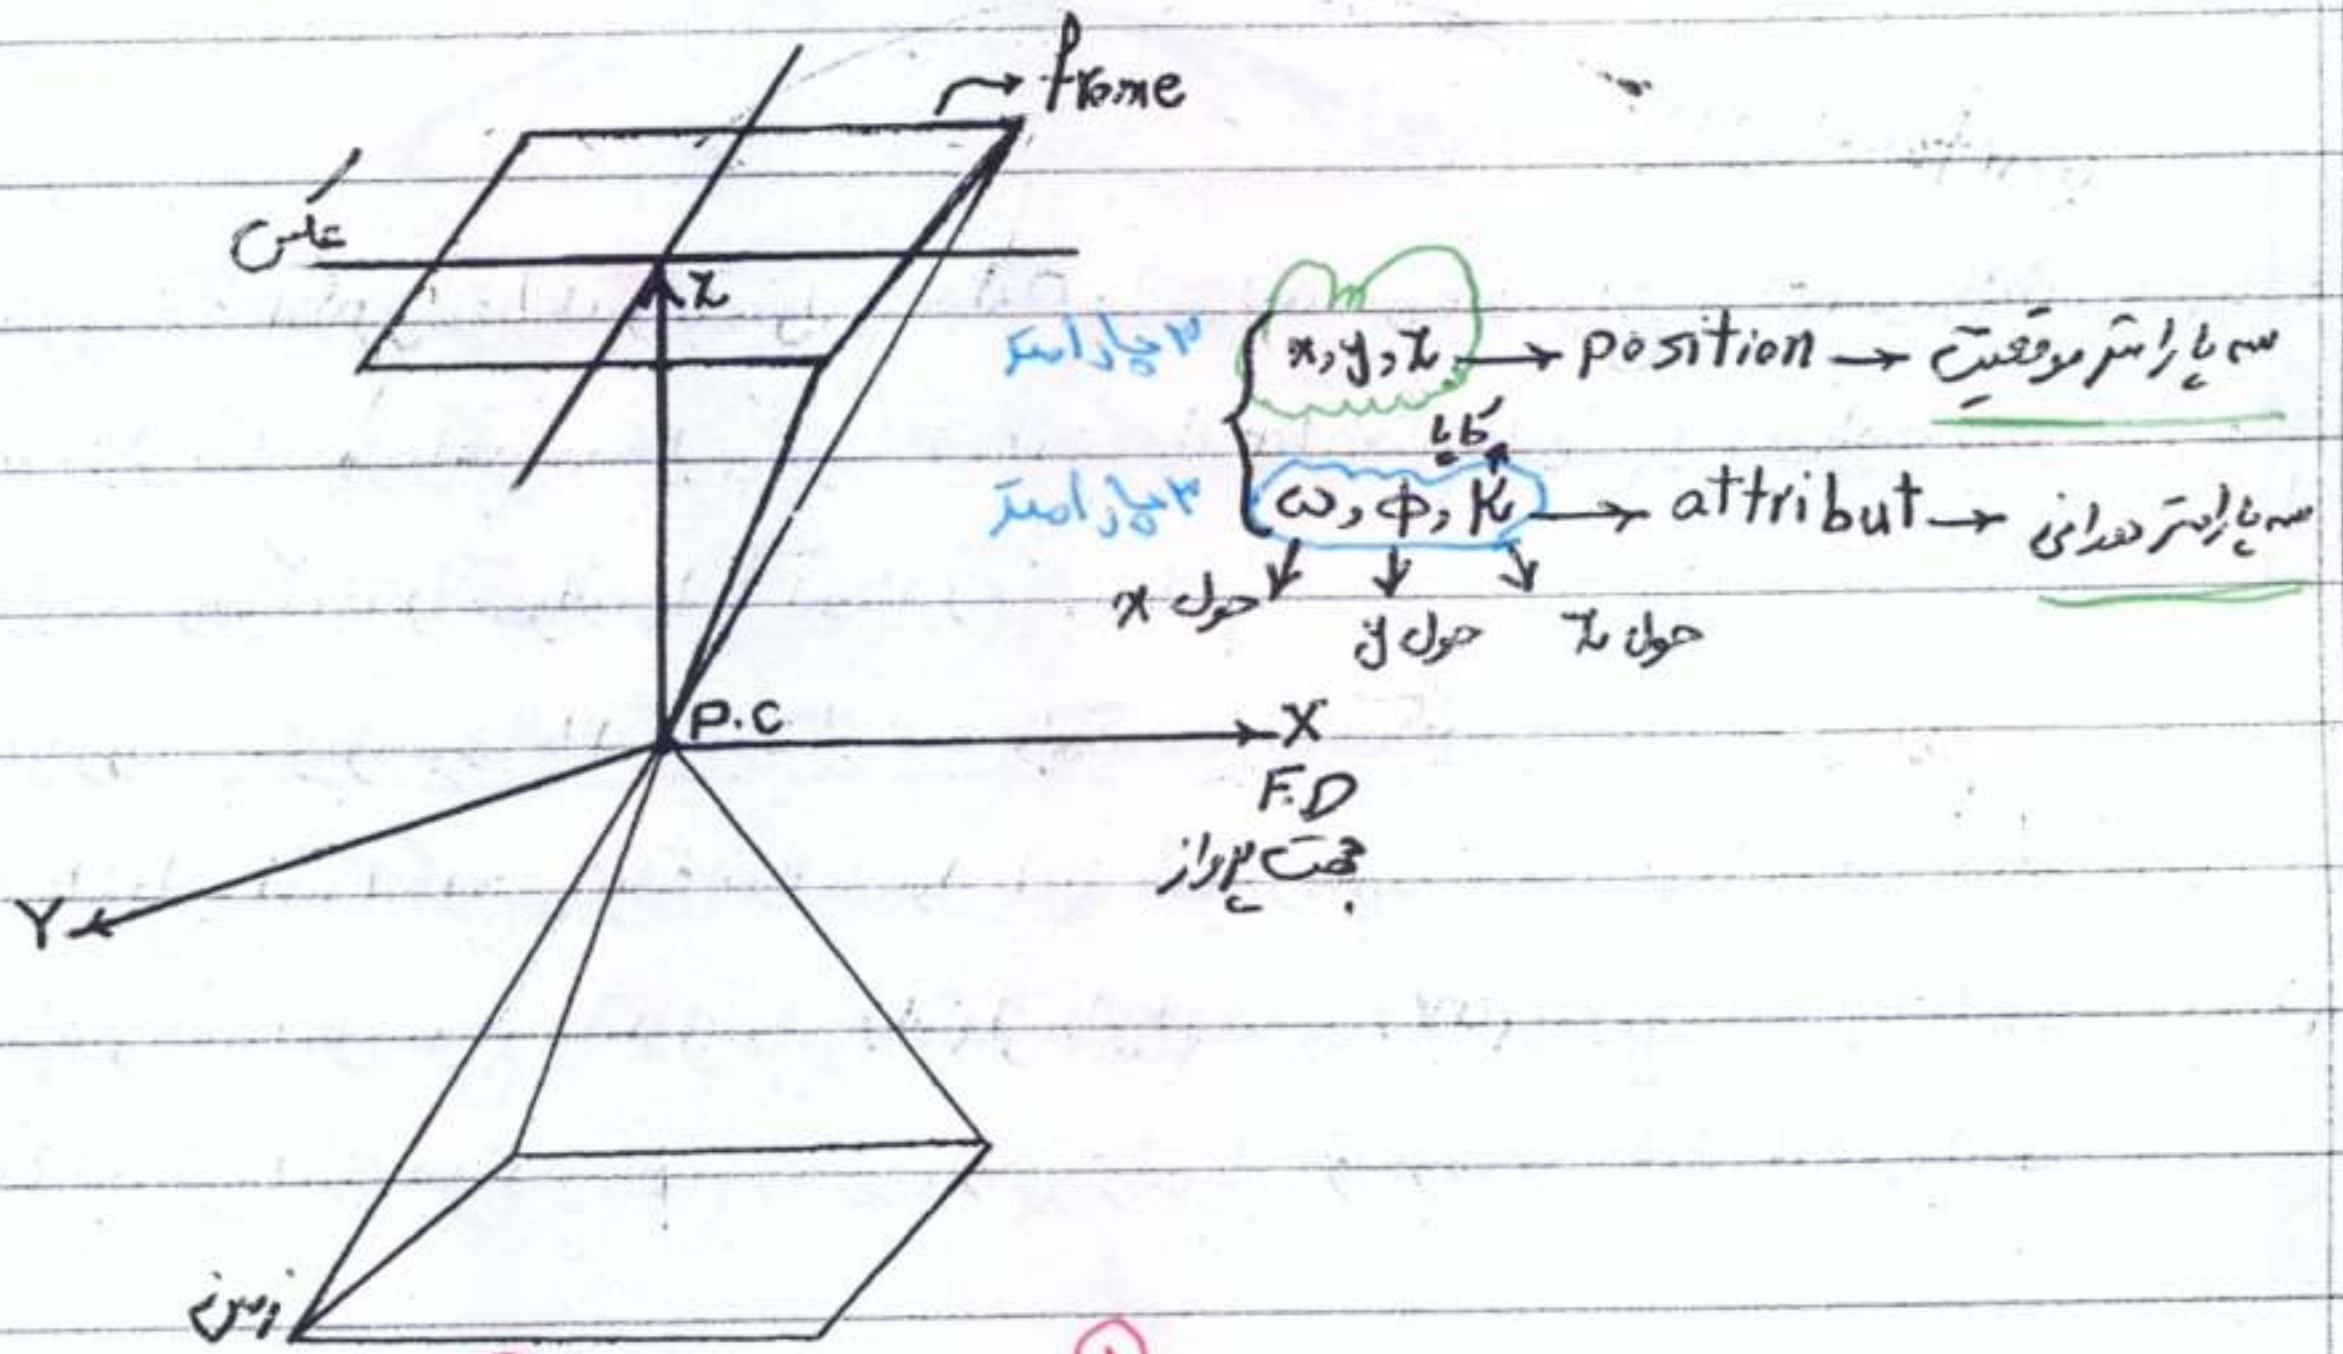 frame
عکس
z
۳ پارامتر x, y, z → position → سه پارامتر موقعیت
کاپا
۳ پارامتر ω, φ, κ → attribut → سه پارامتر دورانی
حول x حول y حول z
P.C
X
F.D
جهت پرواز
Y
زمین